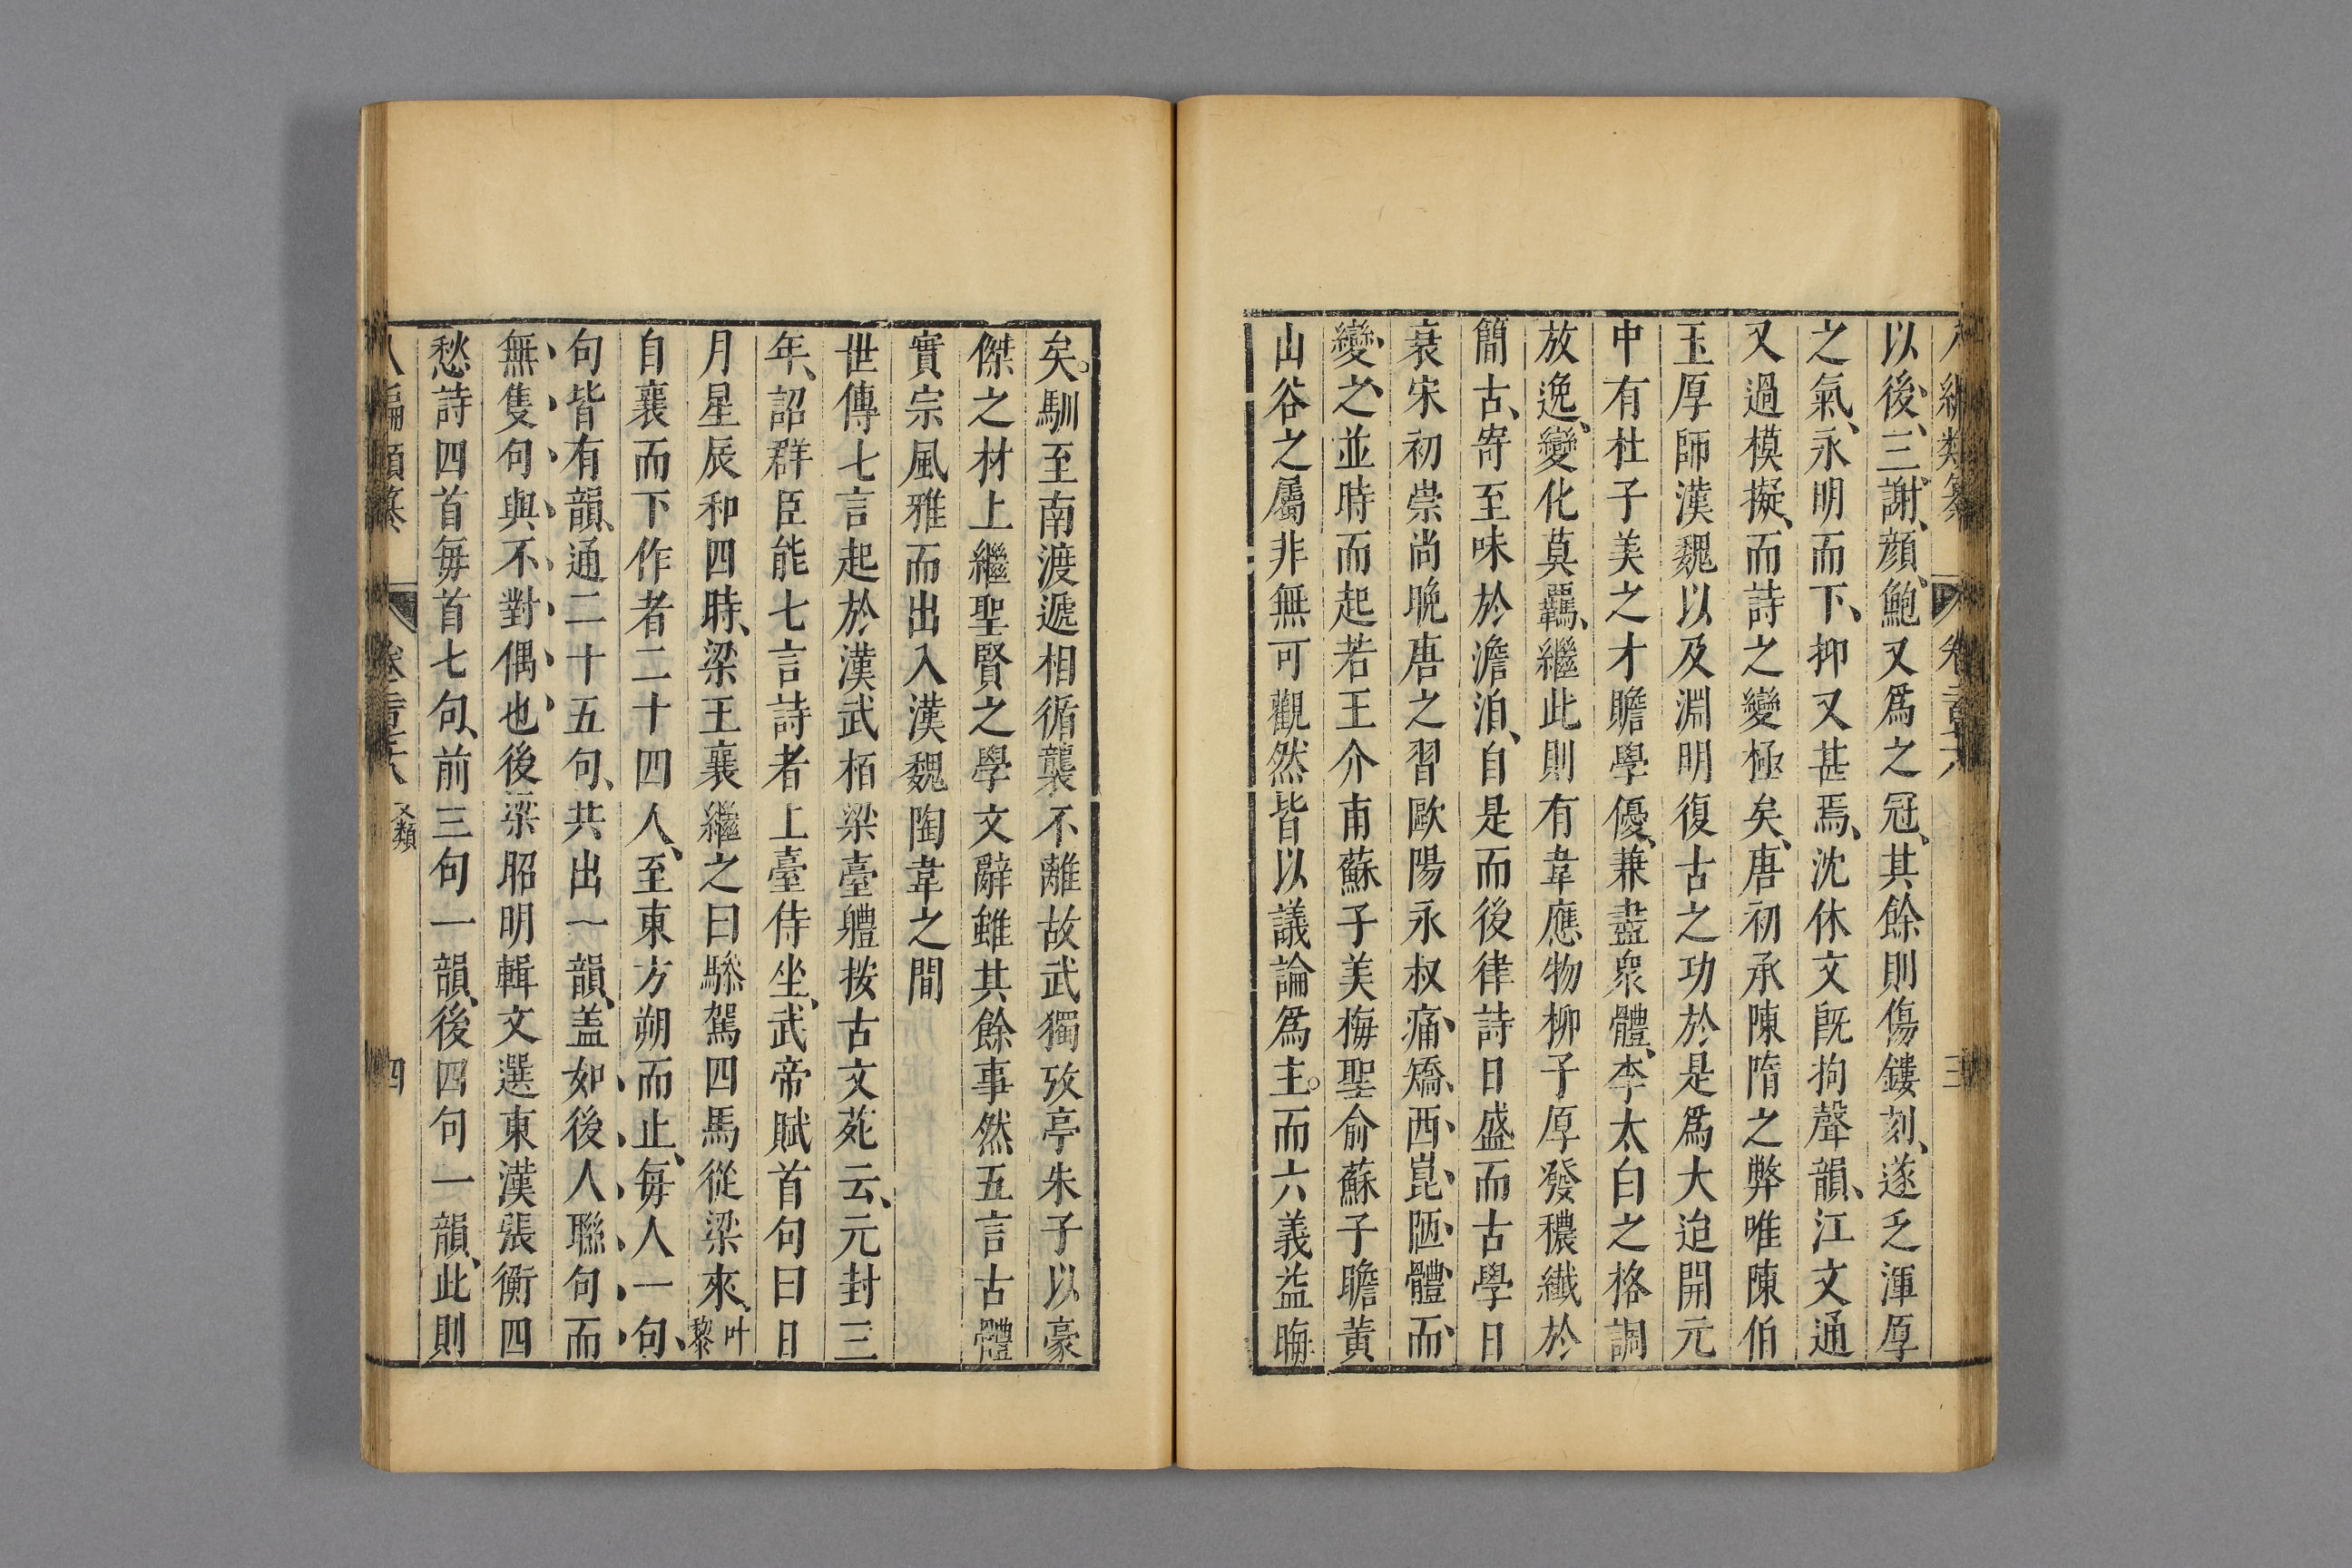 以後、三謝、顔、鮑又爲之冠、其餘則傷鏤刻、遂乏渾厚
之氣、永明而下、抑又甚焉、沈休文既拘聲韻、江文通
又過模擬、而詩之變極矣、唐初承陳隋之弊唯陳伯
玉厚師漢魏以及淵明復古之功於是爲大迨開元
中有杜子美之才贍學優、兼盡衆體、李太白之格調
放逸、變化莫羈、繼此則有韋應物柳子厚發穠纖於
簡古、寄至味於澹泊、自是而後律詩日盛而古學日
衰宋初崇尚晩唐之習歐陽永叔痛矯西崑陋體而
變之並時而起若王介甫蘇子美梅聖俞蘇子瞻黄
山谷之屬非無可觀然皆以議論爲主。而六義益晦
矣。馴至南渡遞相循襲不離故武獨攷亭朱子以豪
傑之材上繼聖賢之學文辭雖其餘事然五言古體
實宗風雅而出入漢魏陶韋之間
世傳七言起於漢武栢梁臺體按古文苑云、元封三
年、詔群臣能七言詩者上臺侍坐、武帝賦首句曰日
月星辰和四時、梁王襄繼之曰驂駕四馬從梁來、叶黎
自襄而下作者二十四人、至東方朔而止、毎人一句、
句皆有韻、通二十五句、共出一韻、盖如後人聯句而
無隻句與不對偶也後梁昭明輯文選東漢張衡四
愁詩四首毎首七句、前三句一韻、後四句一韻、此則
文類
四